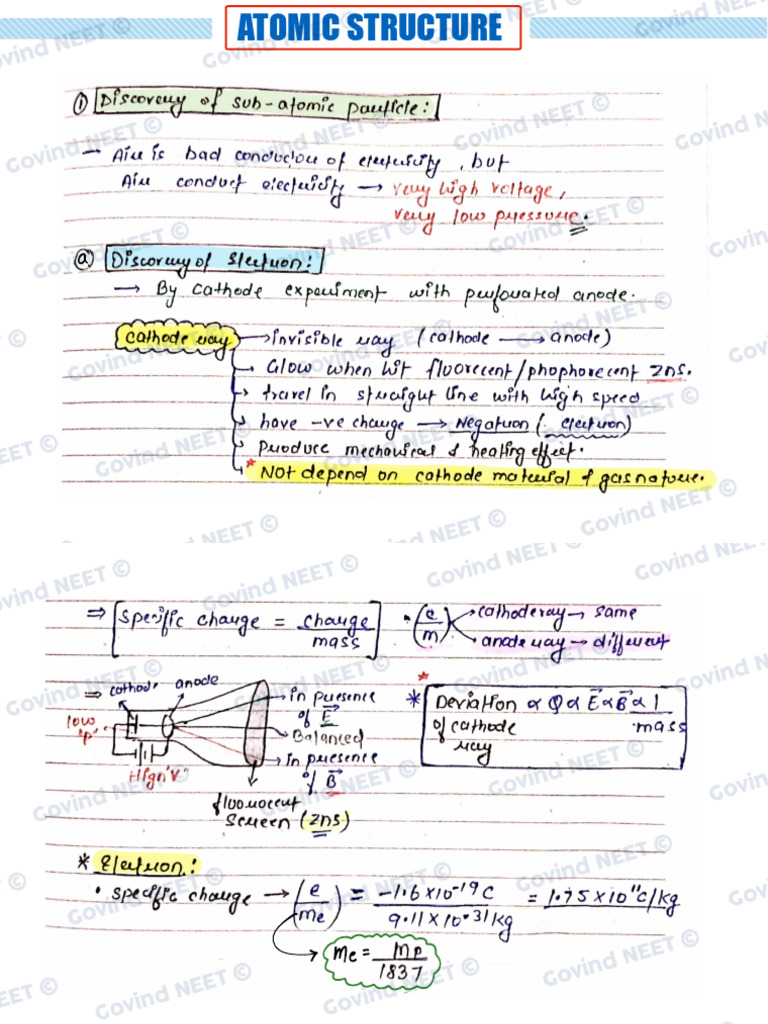 ATOMIC STRUCTURE
① Discovery of sub-atomic particle:
→ Air is bad conductor of electricity, but
Air conduct electricity → very high voltage,
very low pressure.
ⓐ Discovery of Electron:
→ By cathode experiment with perforated anode.
Cathode ray → invisible ray (cathode → anode)
→ Glow when hit fluorecent/phophorecent ZnS.
→ travel in straight line with high speed
→ have -ve charge → Negatron (electron)
→ Produce mechanical & heating effect.
* NOT depend on cathode material & gas nature.
⇒ [Specific charge = charge/mass] • (e/m) → cathode ray → same
→ anode ray → different
⇒ cathode anode
low "P"
High "V"
→ in presence of E⃗
→ Balanced
→ in presence of B⃗
fluorocent
Screen (ZnS)
*
* Deviation ∝ Q ∝ E⃗ ∝ B⃗ ∝ 1/mass
of cathode
ray
* Electron:
• Specific charge → (e/me) = -1.6×10⁻¹⁹C / 9.11×10⁻³¹kg = 1.75×10¹¹C/kg
me = Mp/1837
Govind NEET ©